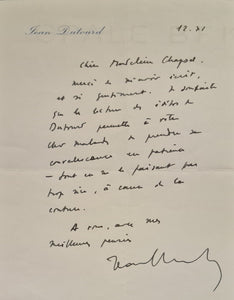 Jean Dutourd
12.XI
Chère Madeleine Chapsal,
merci de m'avoir écrit,
et si gentiment. Je souhaite
que la lecture des idées de
Dutourd permette à votre
cher malade de prendre sa
convalescence en patience
— dont on ne le faisant pas
trop rire, à cause de la
couture.
A vous, avec mes
meilleures pensées